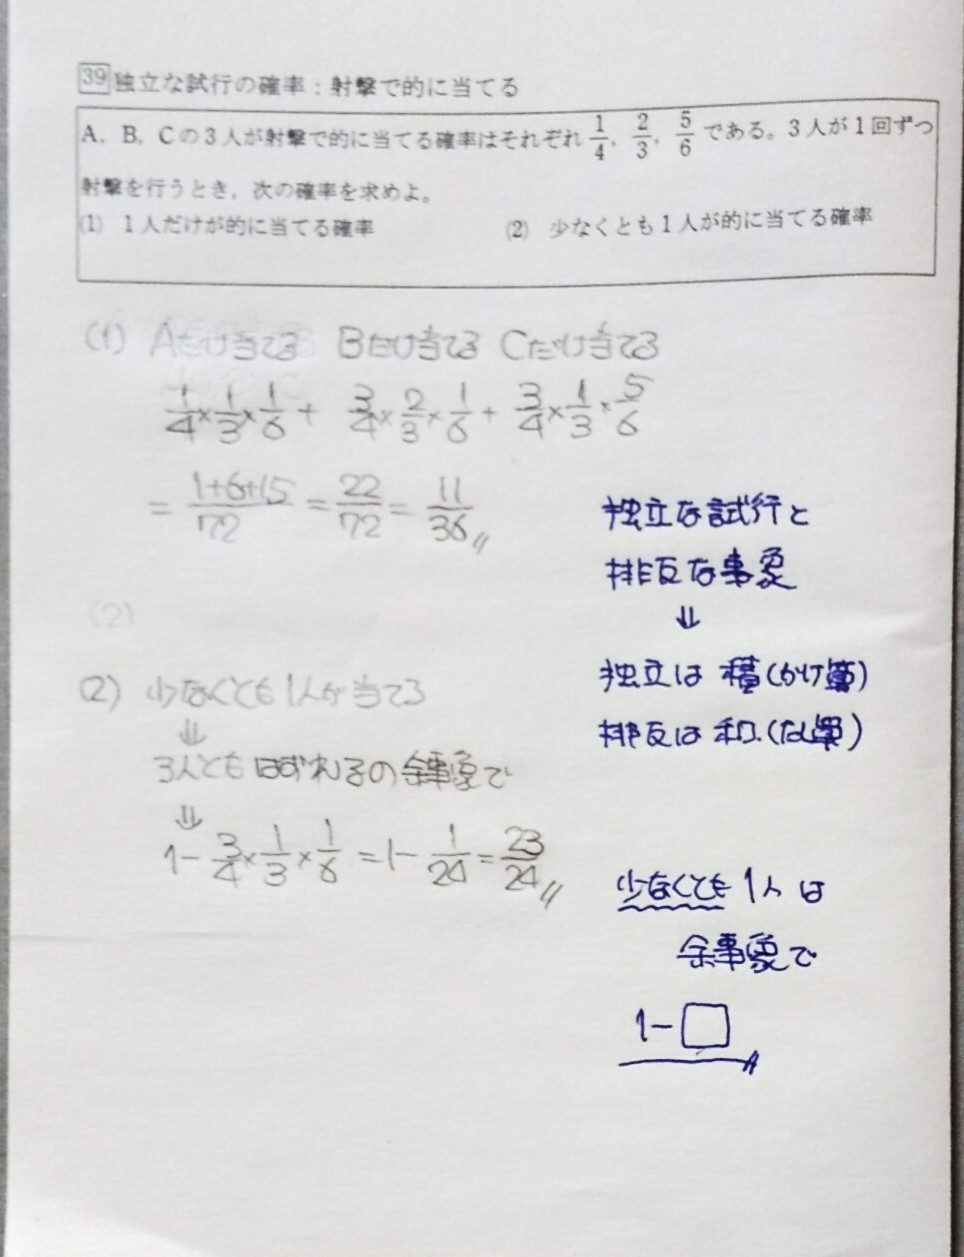 39 独立な試行の確率：射撃で的に当てる
A，B，Cの3人が射撃で的に当てる確率はそれぞれ 1/4，2/3，5/6 である。3人が1回ずつ
射撃を行うとき，次の確率を求めよ。
(1) 1人だけが的に当てる確率 (2) 少なくとも1人が的に当てる確率
(1) Aだけ当てる Bだけ当てる Cだけ当てる
1/4×1/3×1/6 + 3/4×2/3×1/6 + 3/4×1/3×5/6
= (1+6+15)/72 = 22/72 = 11/36
(2)
(2) 少なくとも1人が当てる
⇓
3人ともはずれるの余事象で
⇓
1－3/4×1/3×1/6 = 1－1/24 = 23/24
独立な試行と
排反な事象
⇓
独立は 積(かけ算)
排反は 和(たし算)
少なくとも1人は
余事象で
1－□